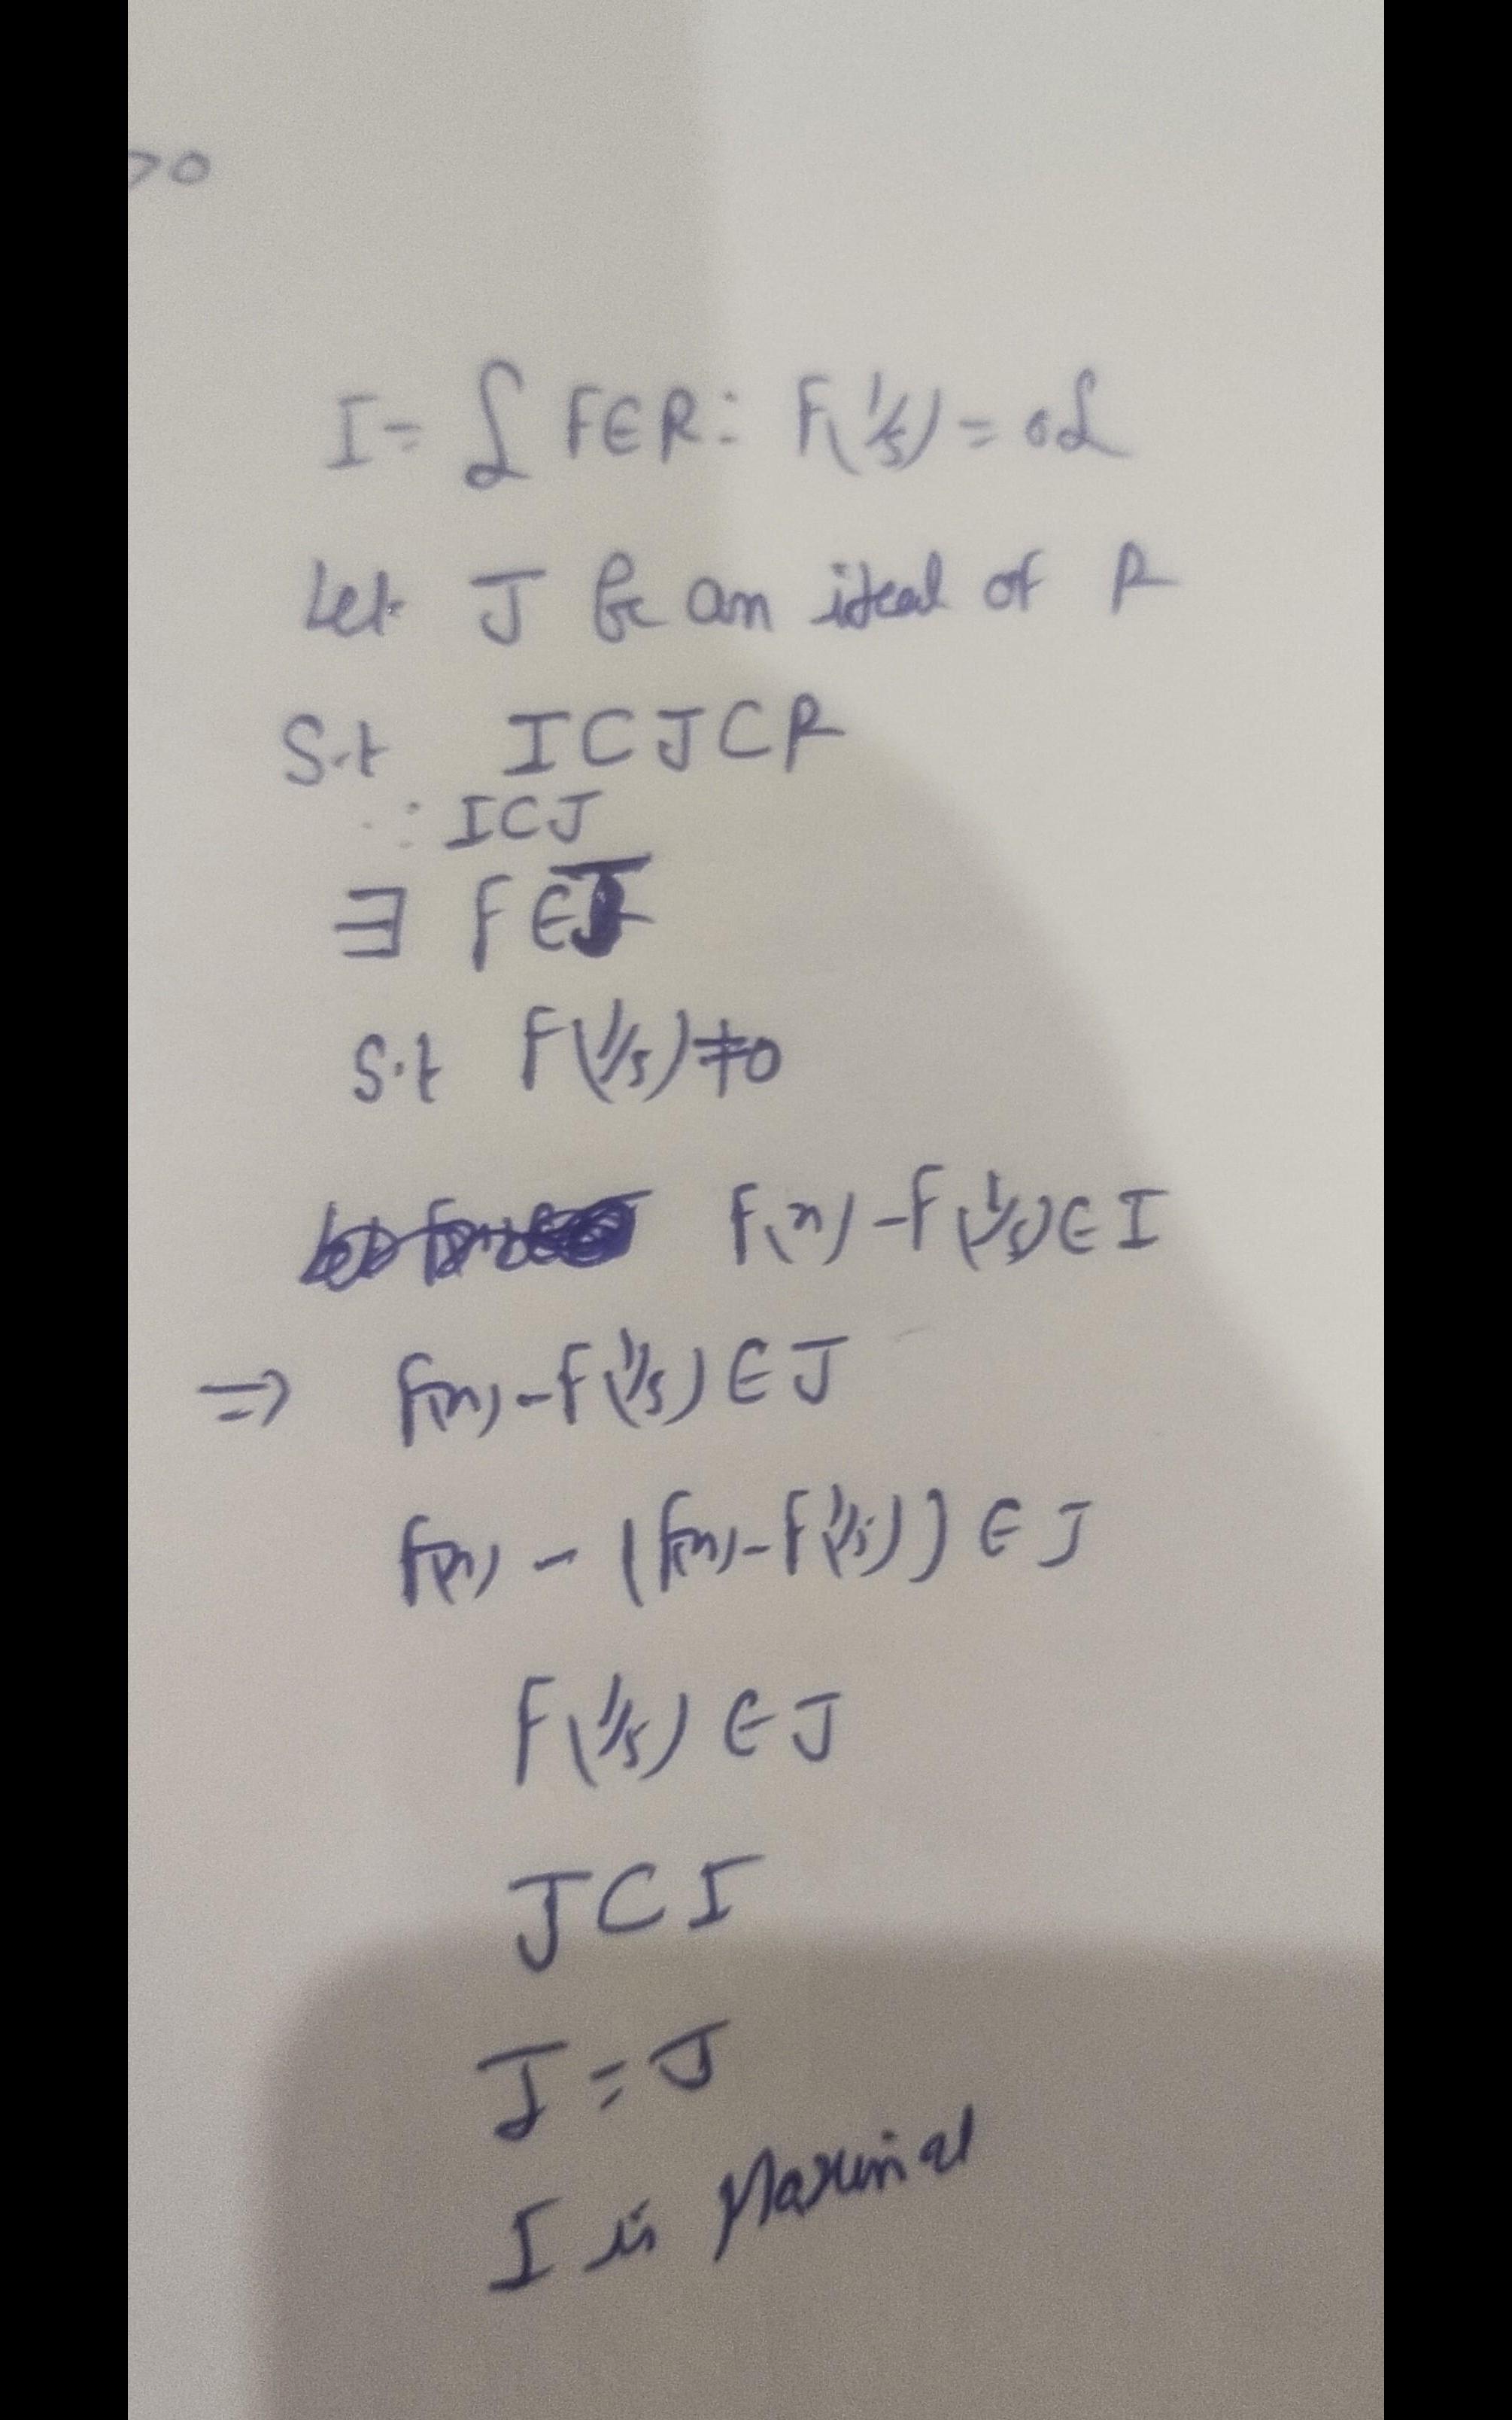 >0
I = { F∈R : F(1/5) = 0}
Let J be an ideal of R
S.t I⊂J⊂R
∵ I⊂J
∃ F∈J
S.t F(1/5)≠0
F(x) - F(1/5)∈I
⇒ F(x) - F(1/5) ∈ J
F(x) - (F(x) - F(1/5)) ∈ J
F(1/5) ∈ J
J⊂I
I = J
I is Maximal